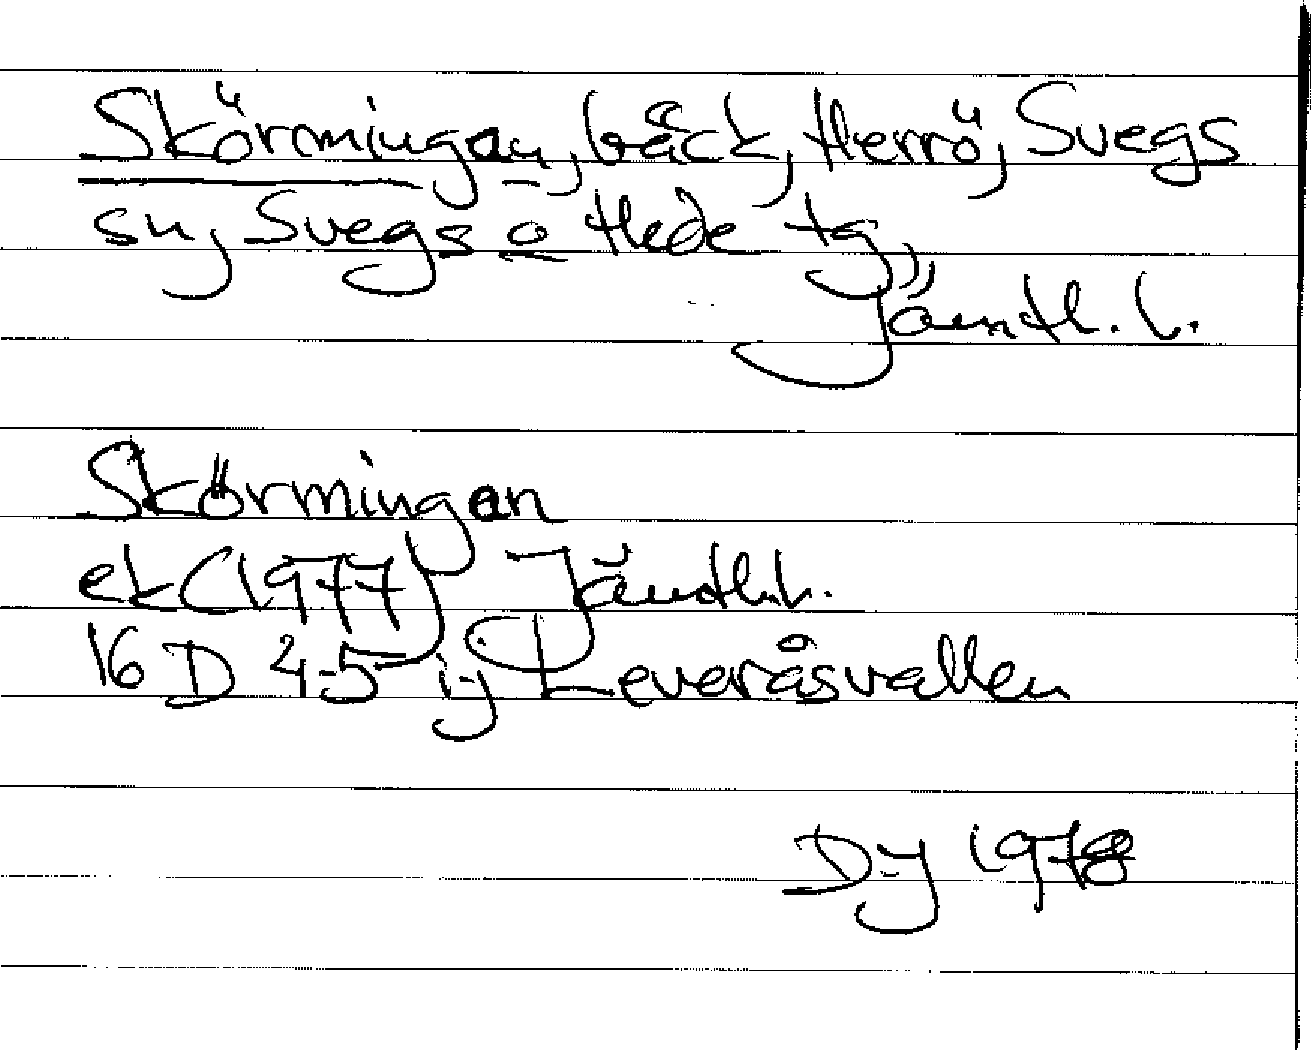 Skörmingan, bäck, Herrö, Svegs
sn, Svegs o Hede tg,
Jämtl. l.
Skörmingan
ek (1977) Jämtl. l.
16 D 4-5 i-j Leveråsvallen
D-J 1978